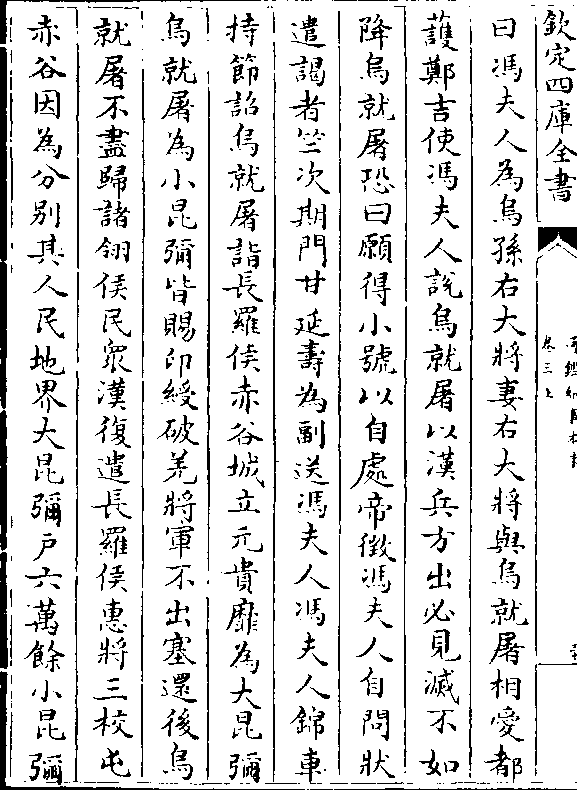 欽定四庫全書
卷三上
曰馮夫人為烏孫右大將妻右大將與烏就屠相愛都
護鄭吉使馮夫人說烏就屠以漢兵方出必見滅不如
降烏就屠恐曰願得小號以自處帝徵馮夫人自問狀
遣謁者竺次期門甘延壽為副送馮夫人馮夫人錦車
持節詔烏就屠詣長羅侯赤谷城立元貴靡為大昆彌
烏就屠為小昆彌皆賜印綬破羌將軍不出塞還後烏
就屠不盡歸諸翎侯民衆漢復遣長羅侯惠將三校屯
赤谷因為分別其人民地界大昆彌户六萬餘小昆彌